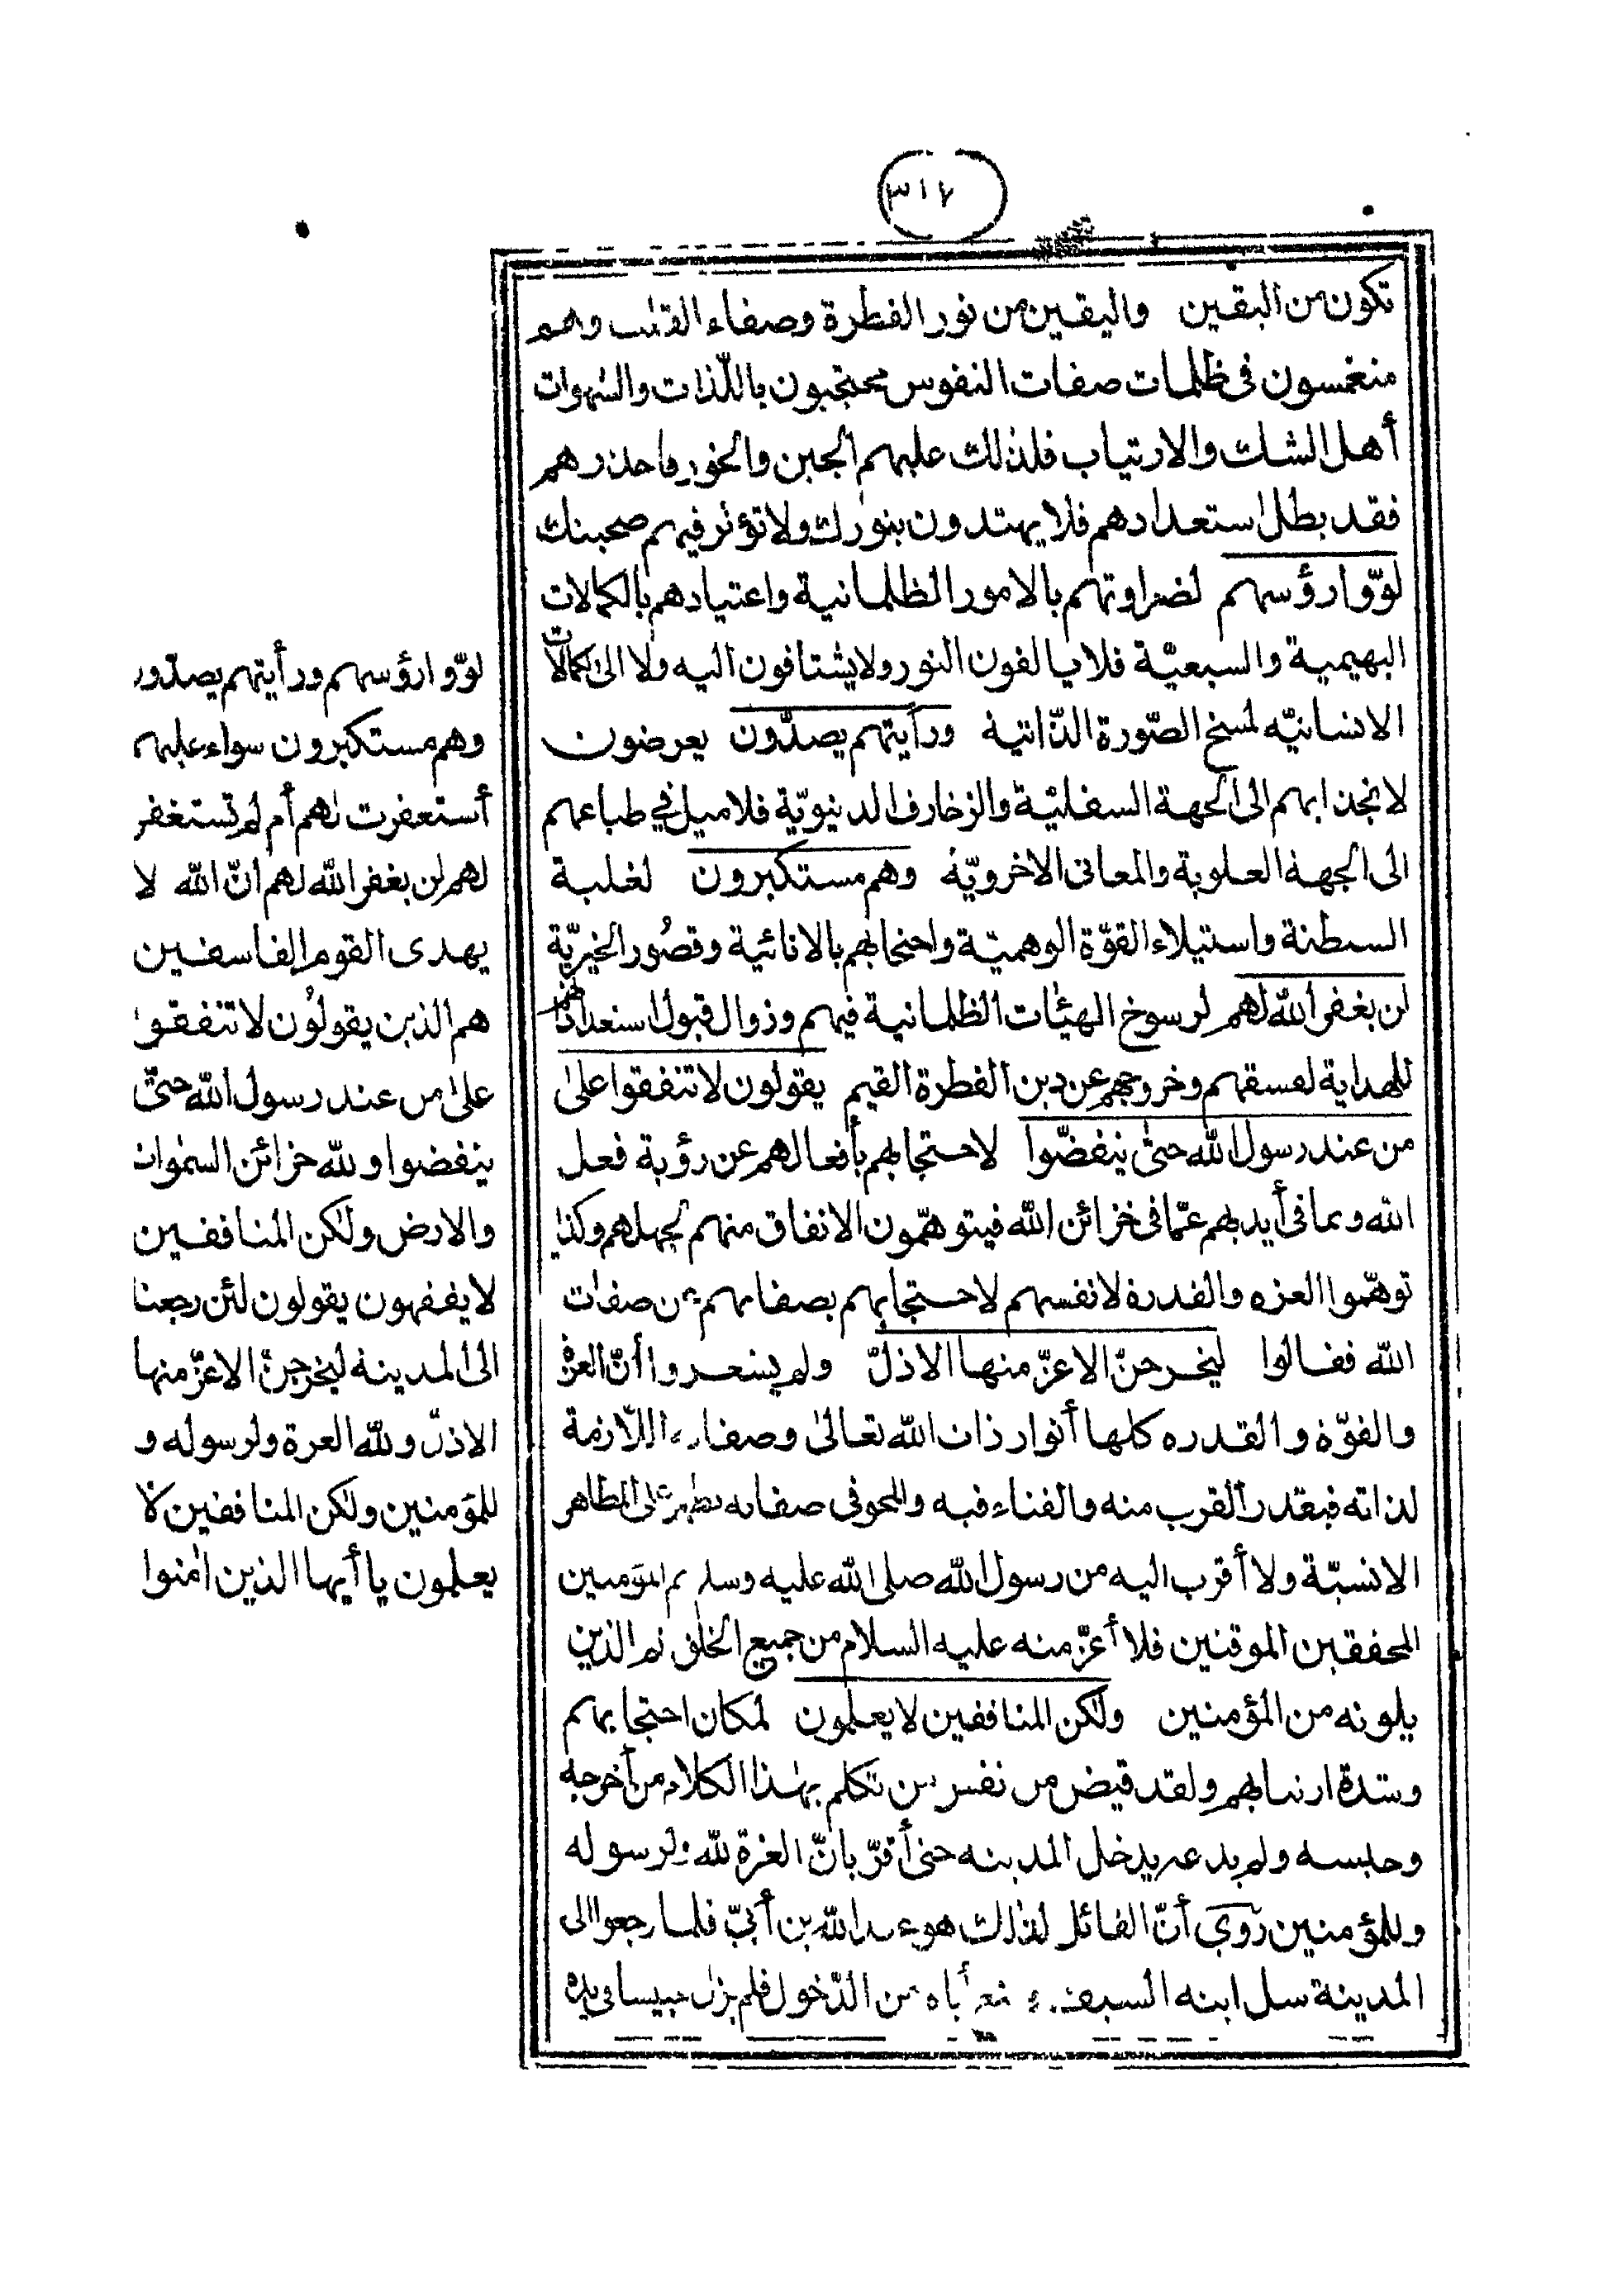 ٣١٧
تكون من اليقين واليقين من نور الفطرة وصفاء القلب وهم
منغمسون فى ظلمات صفات النفوس محتجبون باللّذات والشهوات
أهل الشك والارتياب فلذلك عليهم الجبن والخور فاحذرهم
فقد بطل استعدادهم فلا يهتدون بنورك ولا تؤثر فيهم صحبتك
لوّوا رؤسهم لضراوتهم بالامور الظلمانية واعتيادهم بالكمالات
البهيمية والسبعيّة فلا يالفون النور ولا يشتاقون اليه ولا الى كمالات
الانسانيّه لمسخ الصّورة الذّاتية ورأيتهم يصدّون يعرضون
لانجذابهم الى الجهة السفليّة والزخارف الدنيويّة فلا ميل فى طباعهم
الى الجهة العلوية والمعانى الاخرويّة وهم مستكبرون لغلبة
السطنة واستيلاء القوّة الوهميّة واحتجابهم بالانائية وقصُور الخيريّة
لن يغفر الله لهم لرسوخ الهيئات الظلمانية فيهم وزوال قبول استعدادهم
للهداية لفسقهم وخروجهم عن دين الفطرة القيم يقولون لا تنفقوا على
من عند رسول الله حتى ينفضّوا لاحتجابهم بأفعالهم عن رؤية فعل
الله وبما فى أيديهم عمّا فى خزائن الله فيتوهّمون الانفاق منهم لجهلهم وكذا
توهّموا العزه والقدرة لانفسهم لاحتجابهم بصفاتهم عن صفات
الله فقالوا ليخرجنّ الاعزّ منها الاذلّ ولم يشعروا أنّ العزّة
والقوّة والقدره كلها أنوار ذات الله تعالى وصفاته اللّازمة
لذاته فبقدر القرب منه والفناء فيه والمحو فى صفاته تظهر على المظاهر
الانسيّة ولا أقرب اليه من رسول الله صلى الله عليه وسلم ثم المؤمنين
المحققين الموقنين فلا أعزّ منه عليه السلام من جميع الخلق ثم الذين
يلونه من المؤمنين ولكن المنافقين لا يعلمون لمكان احتجابهم
وشدة ارتيابهم ولقد قيض من نفس من تكلم بهذا الكلام من أخرجه
وحبسه ولم يدعه يدخل المدينه حتى أقرّ بانّ العزة لله ولرسوله
وللمؤمنين روى أنّ القائل لذلك هو عبد الله بن أبىّ فلما رجعوا الى
المدينة سل ابنه السيف أباه من الدّخول فلم يزل حبيسا فى يده
لوّوا رؤسهم ورأيتهم يصدّون
وهم مستكبرون سواء عليهم
أستغفرت لهم أم لم تستغفر
لهم لن يغفر الله لهم انّ الله لا
يهدى القوم الفاسقين
هم الذين يقولُون لا تنفقوا
على من عند رسول الله حتّى
ينفضوا ولله خزائن السموات
والارض ولكن المنافقين
لا يفقهون يقولون لئن رجعنا
الى المدينة ليخرجنّ الاعزّ منها
الاذلّ ولله العزة ولرسوله و
للمؤمنين ولكن المنافقين لا
يعلمون يا أيها الذين امنوا